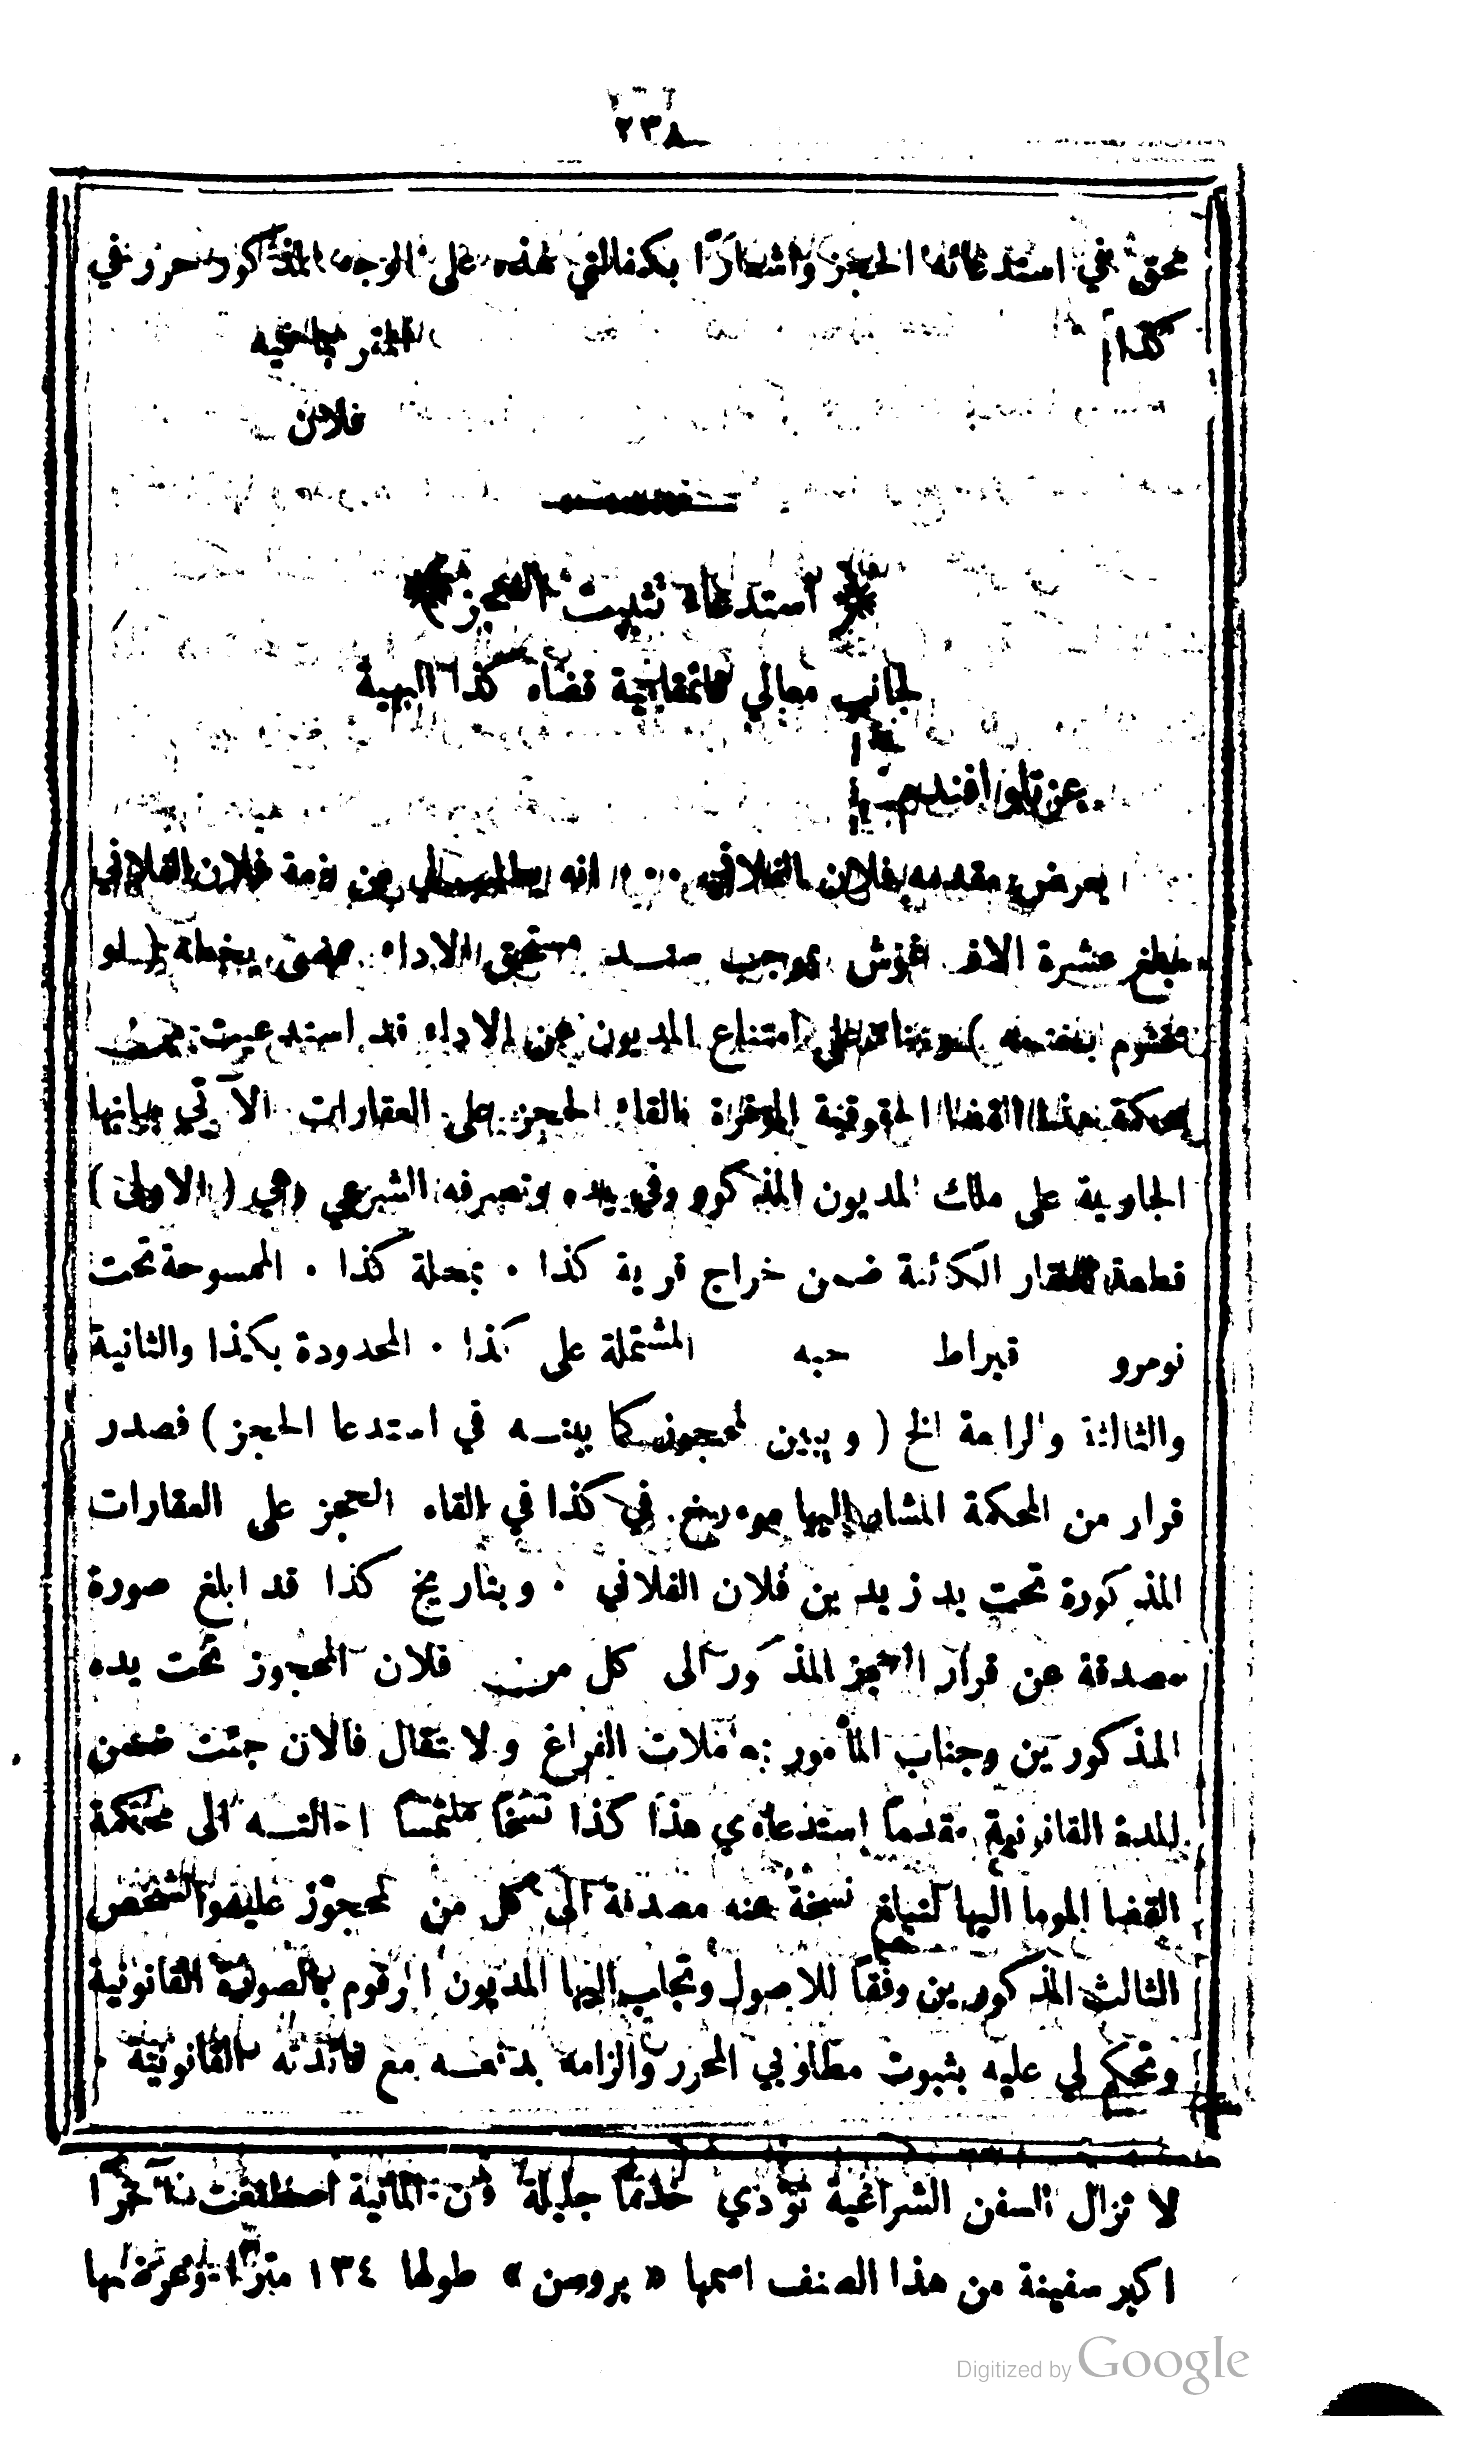 ٢٣٨
محق في استدعائه الحجز واشعارًا بكفالتي هذه على الوجه المذكور حرر في
كذا المقر بما فيه
فلان
استدعاء تثبيت الحجز
لجانب معالي قائمقامية قضاء كذا البهية
عزتلو افندم
يعرض مقدمه فلان الفلاني ٠٠٠ انه يطلب لي من ذمة فلان الفلاني
مبلغ عشرة الاف غرش بموجب سند مستحق الاداء ممضى بخطه ( او
مختوم بختمه ) وبناء على امتناع المديون عن الاداء قد استدعيت من
محكمة هذا القضا الحقوقية الموقرة بالقاء الحجز على العقارات الآتي بيانها
الجارية على ملك المديون المذكور وفي يده وتصرفه الشرعي وهي ( الاولى )
قطعة العقار الكائنة ضمن خراج قرية كذا ٠ بمحلة كذا ٠ الممسوحة تحت
نومرو قيراط حبه المشتملة على كذا ٠ المحدودة بكذا والثانية
والثالثة والرابعة الخ ( ويبين المحجوز كما بينه في استدعا الحجز ) فصدر
قرار من المحكمة المشار اليها مورخ في كذا في القاء الحجز على العقارات
المذكورة تحت يد زيد بن فلان الفلاني ٠ وبتاريخ كذا قد ابلغ صورة
مصدقة عن قرار الحجز المذكور الى كل من فلان المحجوز تحت يده
المذكورين وجناب المأمور بمعاملات الفراغ والانتقال فالان جئت ضمن
المدة القانونية مقدماً استدعاءي هذا كذا نسخاً ملتمساً احالته الى محكمة
القضا الموما اليها لتبلغ نسخة عنه مصدقة الى كل من المحجوز عليه والشخص
الثالث المذكورين وفقاً للاصول وتجلب اليها المديون المرقوم بالصورة القانونية
وتحكم لي عليه بثبوت مطلوبي المحرر والزامه بدفعه مع فائدته القانونية ٠
لا تزال السفن الشراعية تؤدي خدماً جليلة
اكبر سفينة من هذا الصنف اسمها « بروسن » طولها ١٣٤ متراً وعرضها